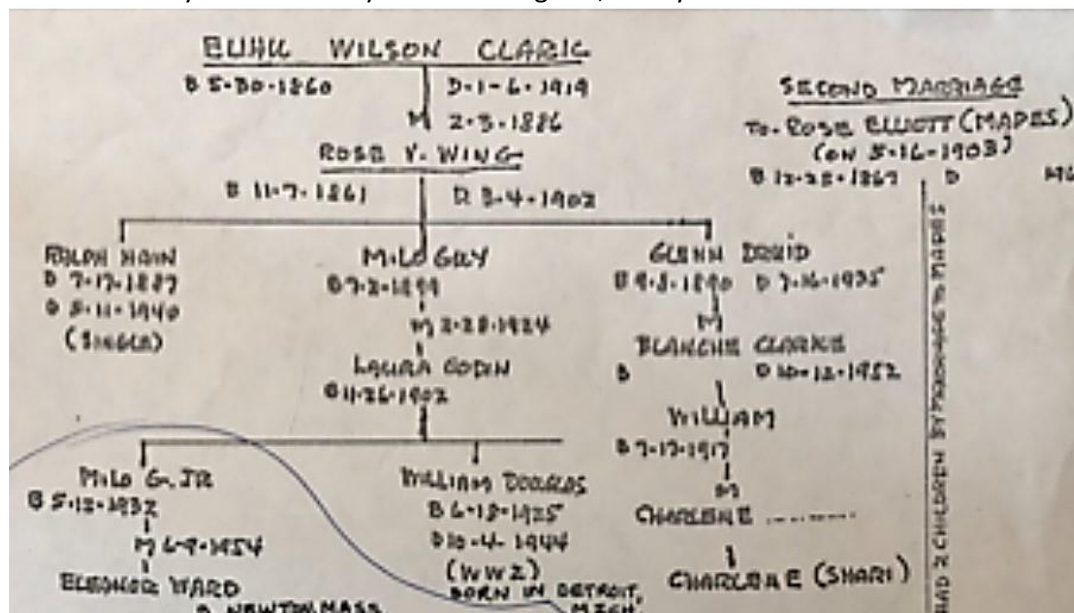 ELIHU WILSON CLARK
B 5-30-1860 D-1-6-1919
M 2-3-1886
ROSE V. WING
B 11-7-1861 D 3-4-1902
SECOND MARRIAGE
TO-ROSE ELLIOTT (MAPES)
(ON 5-16-1903)
B 12-25-1867 D 196
HAD 2 CHILDREN BY MARRIAGE TO MAPES
RALPH
B 7-17-1887
D 5-11-1940
(SINGLE)
MILO GUY
B 7-2-1899
M 2-28-1924
LAURA GODIN
B 11-26-1902
GLENN DRUID
B 9-8-1890 D 7-16-1935
M
BLANCHE CLARKE
B D 10-12-1952
WILLIAM
B 7-17-1917
M
CHARLENE --------
CHARLENE (SHARI)
MILO G. JR
B 5-12-1932
M 6-9-1954
ELEANOR WARD
NEWTON, MASS
WILLIAM DOUGLAS
B 6-18-1925
D 10-4-1944
(WW2)
BORN IN DETROIT,
MICH